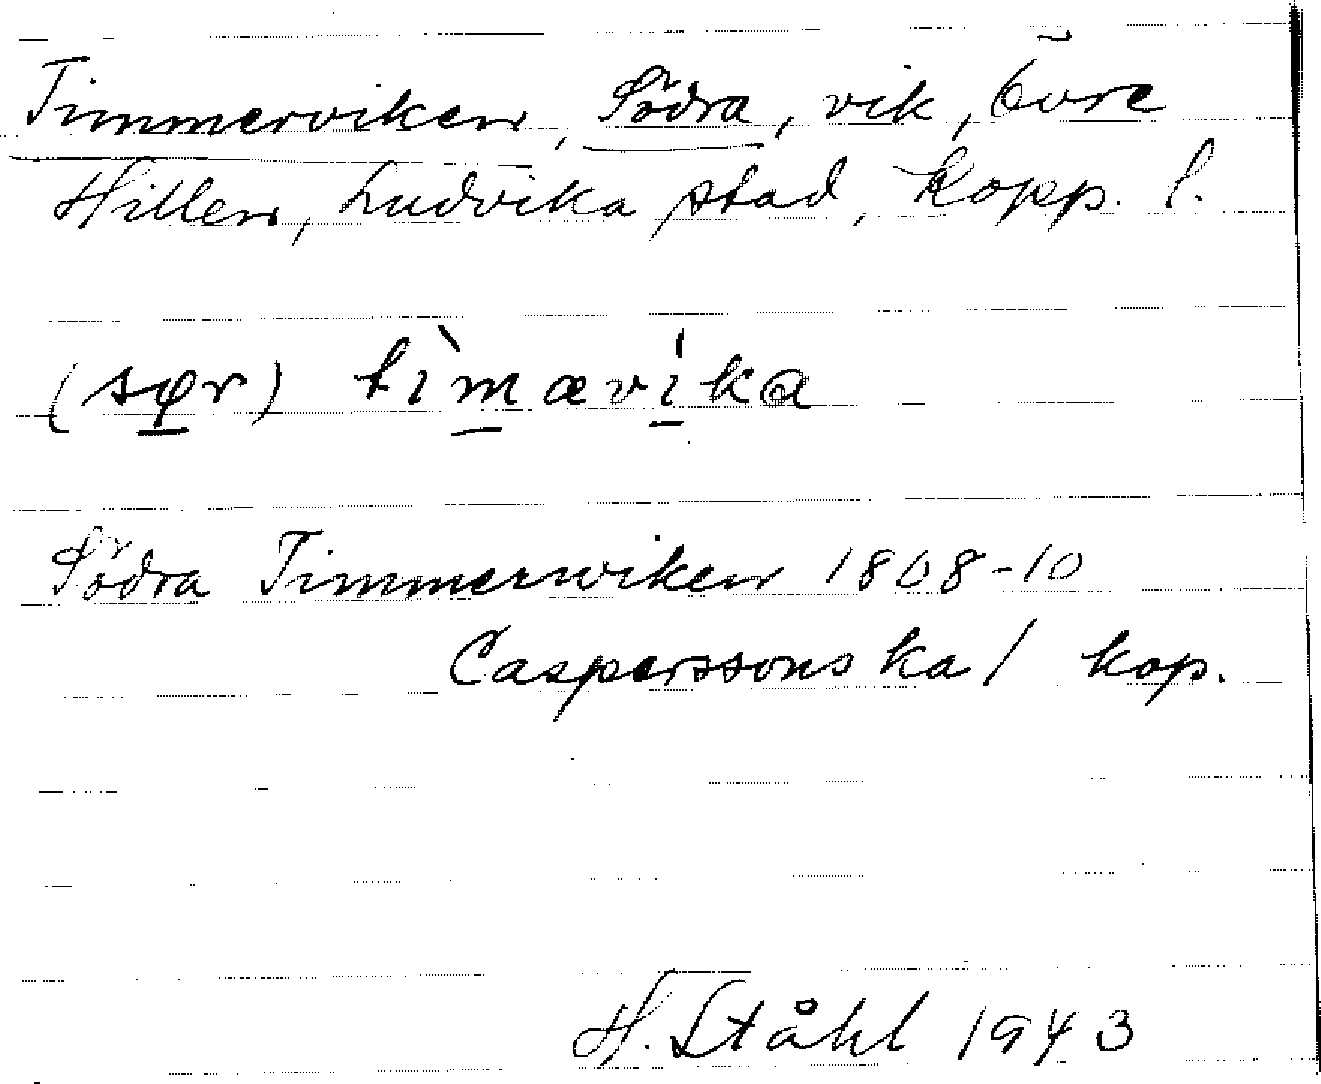 Timmerviken, Södra, vik, Övre
Hillen, Ludvika stad, Kopp. l.
(sφr) tìmævíka
Södra Timmerwiken 1808-10
Casperssons ka/ kop.
H. Ståhl 1943